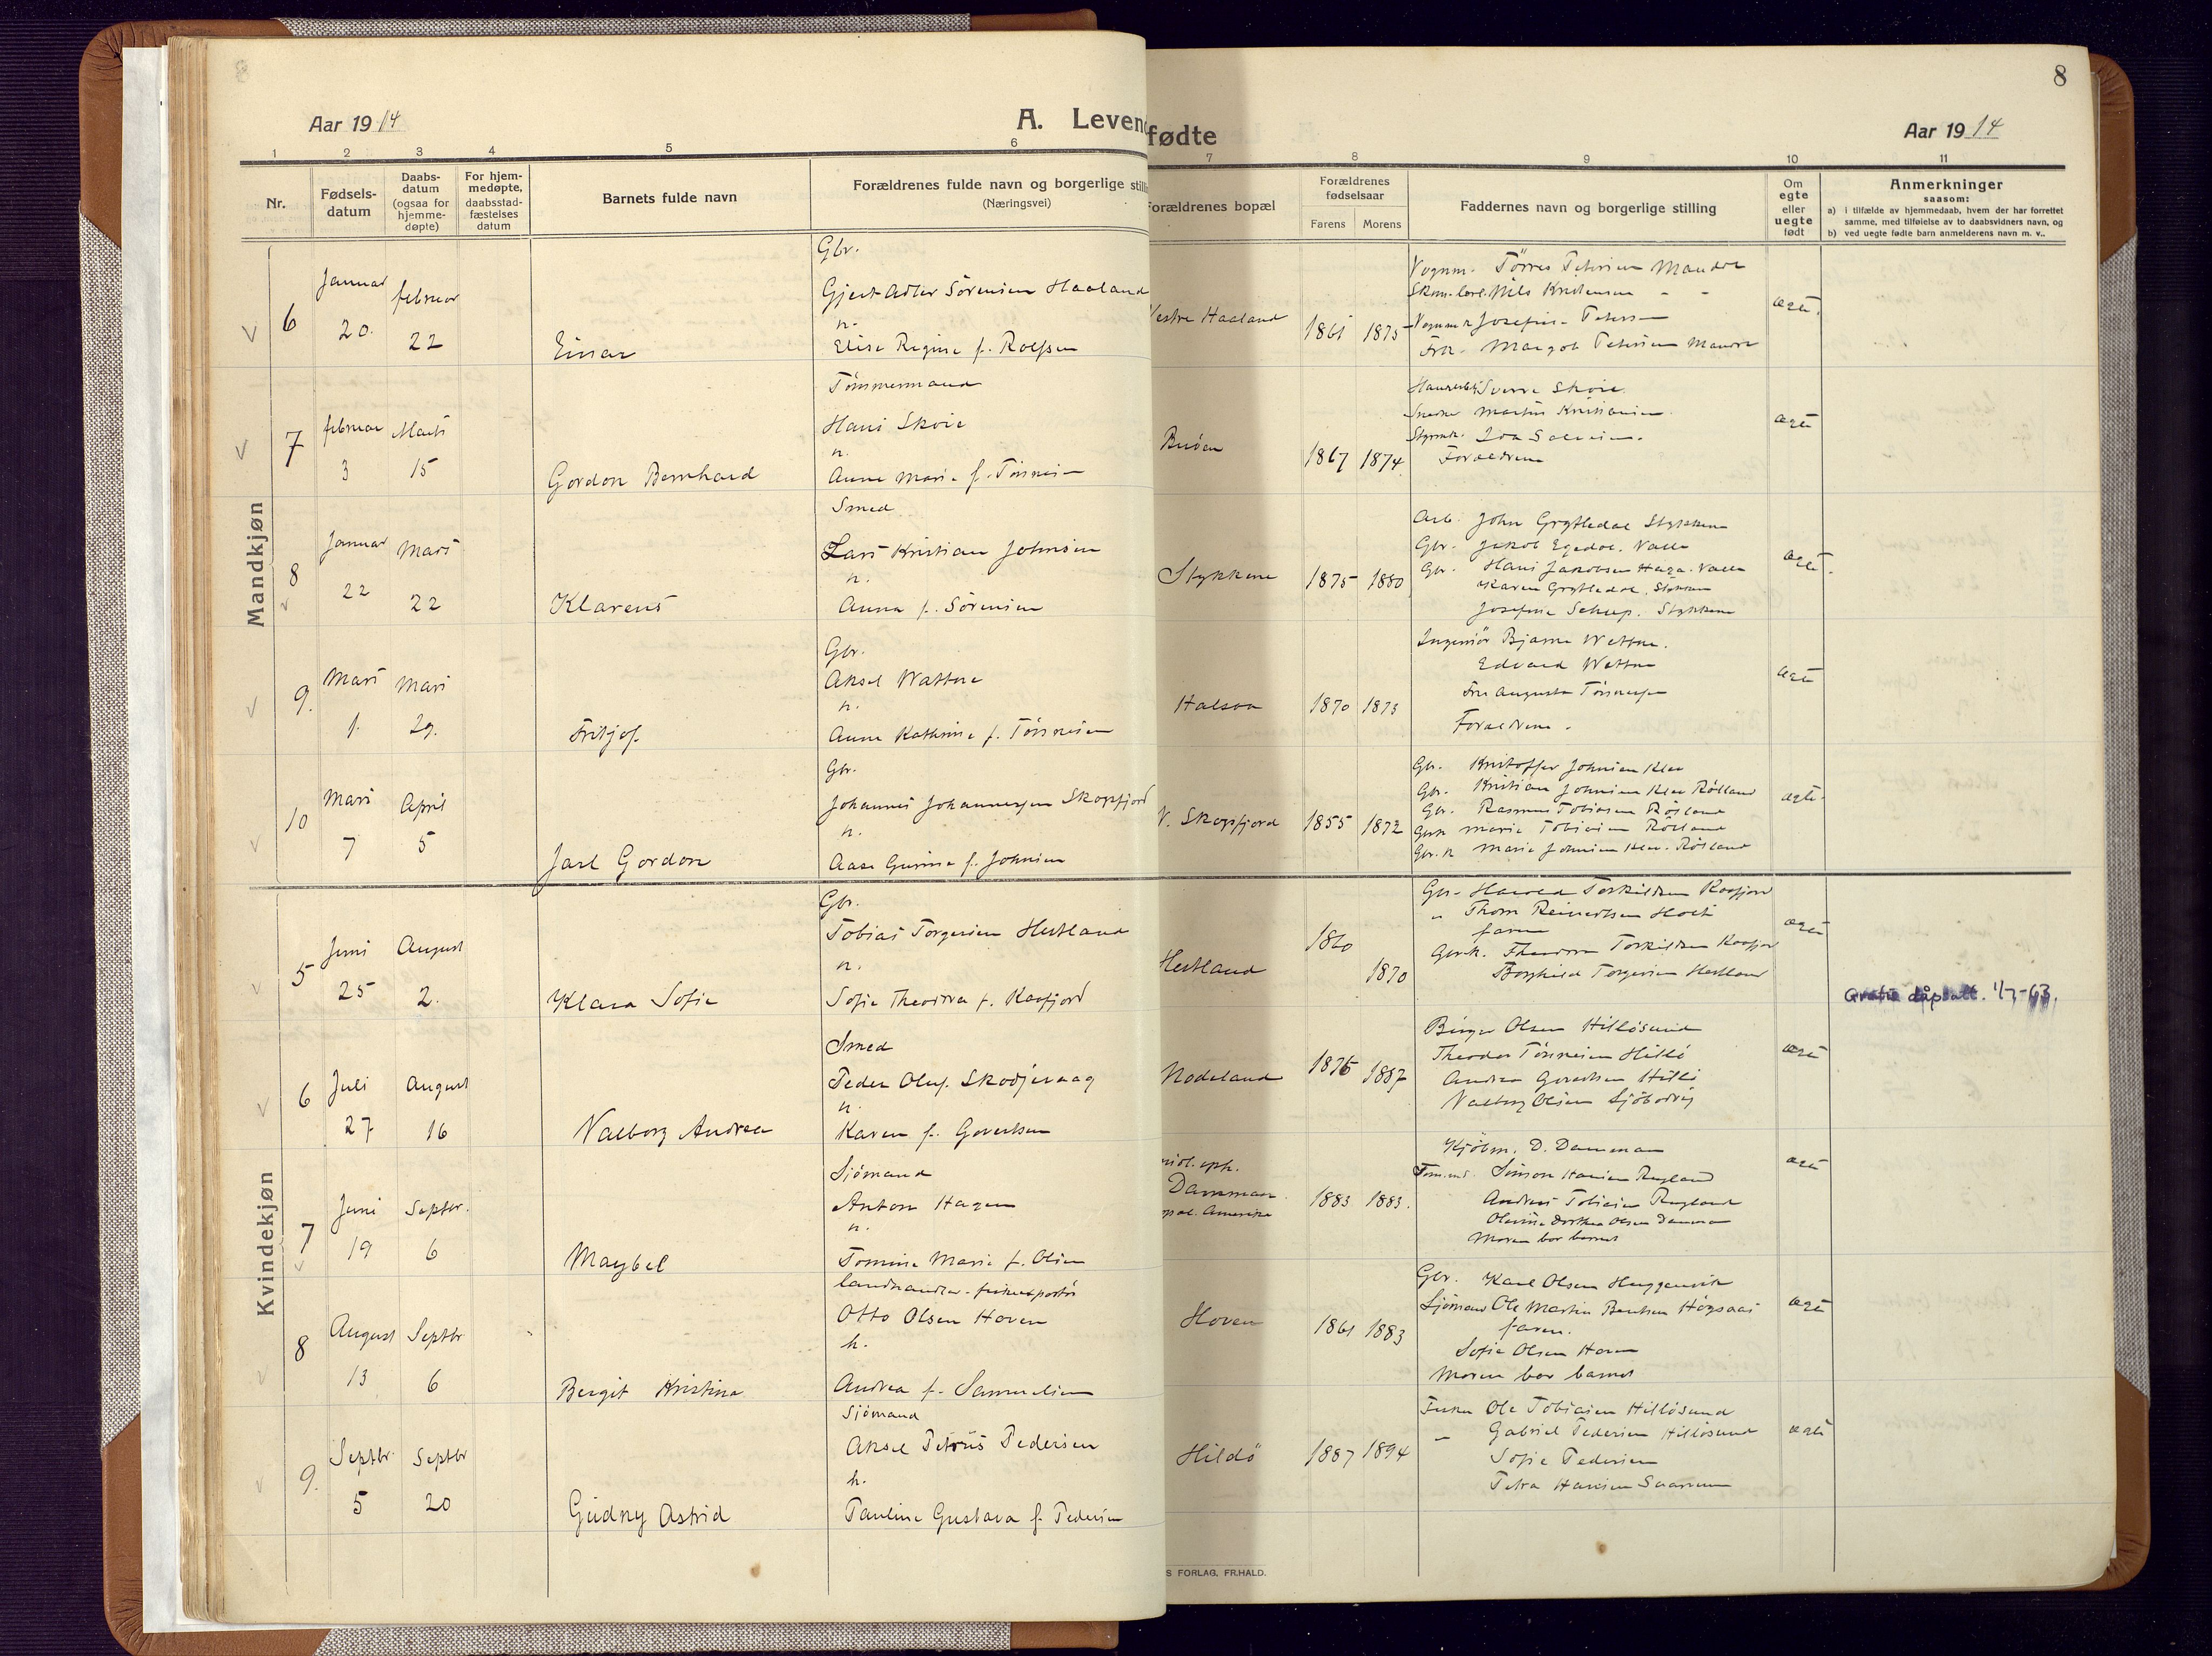 8
Aar 1914
A. Levend
fødte
Aar 1914
1 2 3 4 5 6 7 8 9 10 11
Nr.
Fødsels-
datum
Daabs-
datum
(ogsaa for
hjemme-
døpte)
For hjem-
medøpte,
daabsstad-
fæstelses
datum
Barnets fulde navn
Forældrenes fulde navn og borgerlige stilli
(Næringsvei)
Forældrenes bopæl
Forældrenes
fødselsaar
Farens Morens
Faddernes navn og borgerlige stilling
Om
egte
eller
uegte
født
Anmerkninger
saasom:
a) i tilfælde av hjemmedaab, hvem der har forrettet
samme, med tilføielse av to daabsvidners navn, og
b) ved uegte fødte barn anmelderens navn m. v..
Mandkjøn
6
Januar 20.
februar 22
Einar
Gbr.
Gjert Adler Sörensen Haaland
h.
Elise Regine f. Rolfsen
Vestre Haaland
1861 1875
Törres Petersen Mandal
Nils Kristensen - -
Josefine Petersen
Frk. Margot Petersen Mandal
ægte
7
februar 3
Marts 15
Gordon Bernhard
Tömmermand
Hans Skoie
h.
Anne Marie f. Tönnesen
Buöen
1867 1874
Sverre Skoie
Snedker Martin Kristiansen
Forældrene
ægte
8
Januar 22
Mars 22
Klarens
Smed
Lars Kristian Johnsen
h.
Anna f. Sörensen
Stykkene
1875 1880
Arb. John Grytledal Stykkene
Gbr. Jakob Egedal. Valle
Gbr. Hans Jakobsen Haga. Valle
Karen Grytledal. Stykkene
Josefine Stykkene
ægte.
9.
Mars 1.
Mars 29.
Fritjof.
Gbr.
Aksel Wattne
h.
Anne Kathrine f. Tönnesen
Halsaa
1870 1873
Ingeniör Bjarne Wattne.
Edvard Wattne
Fru Augusta Tönnesen
Forældrene.
ægte
10
Mars 7
April 5
Jarl Gordon
Gbr.
Johannes Johannessen Skogsfjord
h.
Aase Gurine f. Johnsen
V. Skogsfjord
1855 1872
Gbr. Kristoffer Johnsen Klev
Gbr. Kristian Johnsen Klev Röiland
Gbr. Rasmus Tobiasen Röiland
Marie Tobiasen Röiland
Marie Johnsen Klev. Röiland
ægte.
Kvindekjøn
5
Juni 25
August 2.
Klara Sofie
Gbr.
Tobias Torgersen Hestland
h.
Sofie Theodora f. Kaafjord
Hestland
1860 1870
Gbr. Harald Torkildsen Kaafjord
" Thom Reinertsen Holt
faren
Theodora Torkildsen Kaafjord
Borghild Torgersen Hestland
ægte
dåpsatt. 1/7-63.
6
Juli 27
August 16
Valborg Andrea
Smed
Peder Oluf. Skodjevaag
h.
Karen f. Govertsen
Nodeland
1876 1887
Birger Olsen Hillösund
Theodor Tönnesen Hillö
Andrea Govertsen Hillö
Valborg Olsen
ægte
7
Juni 19
Septbr. 6
Maybel
Sjömand
Anton Hagen
h.
Tomine Marie f. Olsen
Damman
Amerika
1883 1883.
Kjöbm. D. Damman
Simon Hansen Rugland
Andreas Tobiasen Rugland
Olevine Dorthea Olsen Damman
Moren bar barnet
ægte
8
August 13
Septbr 6
Bergit Kristine
Landhandler - fiskeexportör
Otto Olsen Hoven
h.
Andrea f. Samuelsen
Hoven
1861 1883
Gbr. Karl Olsen Huggenvik
Sjömand Ole Martin Bentsen Högsaas
faren.
Sofie Olsen Hoven
Moren bar barnet
ægte
9.
Septbr. 5
Septbr 20
Gudny Astrid
Sjömand
Aksel Petrus Pedersen
h.
Pauline Gustava f. Pedersen
Hildö
1887 1894
Fisker Ole Tobiasen Hillösund
- Gabriel Pedersen Hillösund
Sofie Pedersen
Petra Hansen
ægte
S FORLAG, FR.HALD.